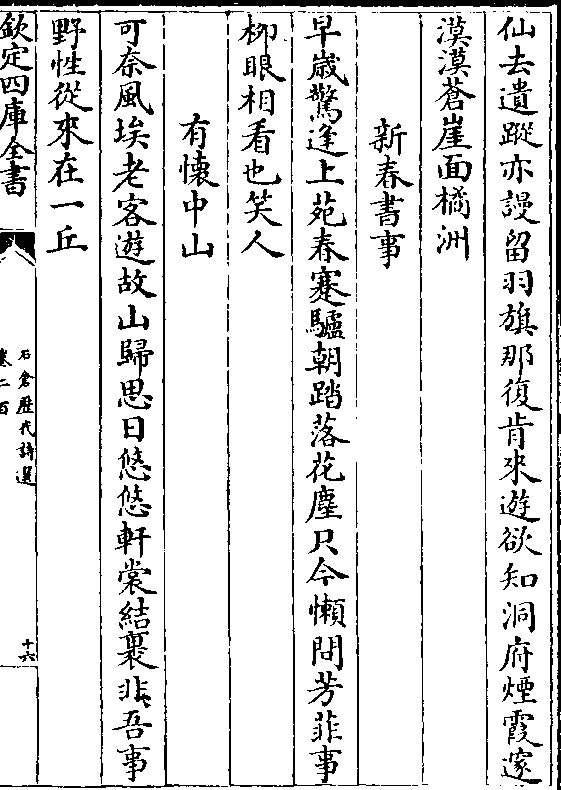 仙去遺蹤亦謾留羽旗那復肯來遊欲知洞府煙霞邃
漠漠蒼崖面橘洲
新春書事
早歲驚逢上苑春蹇驢朝踏落花塵只今懶問芳菲事
柳眼相看也笑人
有懷中山
可奈風埃老客遊故山歸思日悠悠軒裳結裹非吾事
野性從來在一丘
欽定四庫全書
石倉歷代詩選
卷二百
十六